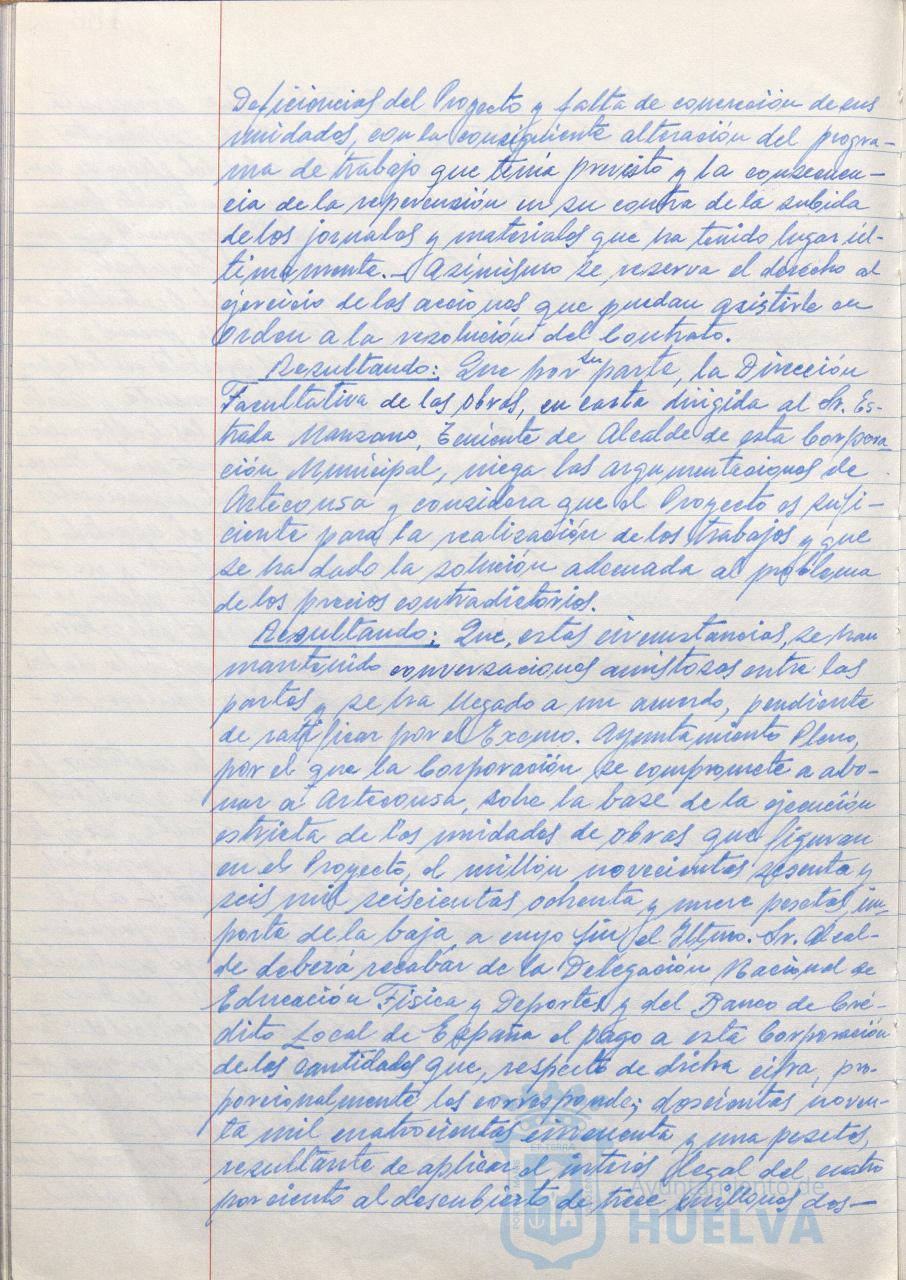 Deficiencias del Proyecto y falta de concreción de sus
unidades, con la consiguiente alteración del progra-
ma de trabajo que tenía previsto y la consecuen-
cia de la repercusión en su contra de la subida
de los jornales y materiales que ha tenido lugar úl-
timamente.- Asimismo se reserva el derecho al
ejercicio de las acciones que puedan asistirle en
Orden a la resolución del Contrato.
Resultando: Que por su parte, la Dirección
Facultativa de las obras, en carta dirigida al Sr. Es-
trada Manzano, Teniente de Alcalde de esta Corpora-
ción Municipal, niega las argumentaciones de
Arteconsa y considera que el Proyecto es sufi-
ciente para la realización de los trabajos y que
se ha dado la solución adecuada al problema
de los precios contradictorios.
Resultando: Que, estas circunstancias, se han
mantenido conversaciones amistosas entre las
partes y se ha llegado a un acuerdo, pendiente
de ratificar por el Excmo. Ayuntamiento Pleno,
por el que la Corporación se compromete a abo-
nar a Arteconsa, sobre la base de la ejecución
estricta de las unidades de obras que figuran
en el Proyecto, el millón novecientas sesenta y
seis mil seiscientas ochenta y nueve pesetas, im-
porte de la baja, a cuyo fin el Iltmo. Sr. Alcal-
de deberá recabar de la Delegación Nacional de
Educación Física y Deportes y del Banco de Cré-
dito Local de España el pago a esta Corporación
de las cantidades que, respecto de dicha cifra, pro-
porcionalmente les corresponde; doscientas noven-
ta mil cuatrocientas cincuenta y una pesetas,
resultante de aplicar el interés legal del cuatro
por ciento al descubierto de trece millones dos-
Ayuntamiento de
HUELVA